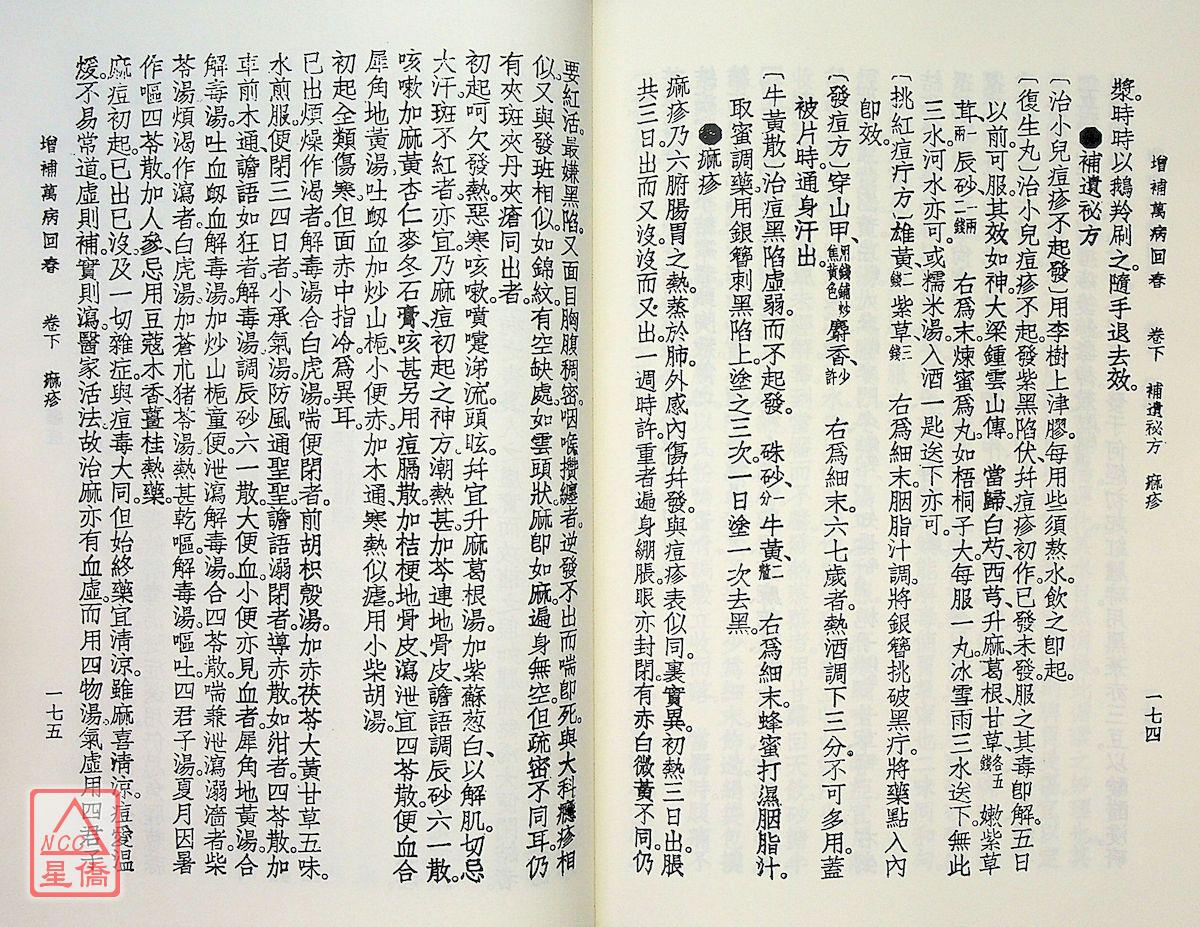 增補萬病回春　卷下　補遺祕方　痲疹　一七四
漿。時時以鵝羚刷之。隨手退去效。
●補遺祕方
〔治小兒痘疹不起發〕用李樹上津膠。每用些須熬水。飲之卽起。
〔復生丸〕治小兒痘疹不起發紫黑陷伏幷痘疹初作。已發未發服之其毒卽解。五日
以前可服。其效如神。大梁鍾雲山傳。 當歸、白芍、西芎、升麻葛根甘草、各五錢 嫩紫草
茸、一兩 辰砂、一兩二錢 右爲末。煉蜜爲丸。如梧桐子大。每服一丸。冰雪雨三水送下。無此
三水河水亦可。或糯米湯入酒一匙送下亦可。
〔挑紅痘疔方〕雄黃、二錢 紫草、三錢 右爲細末。胭脂汁調。將銀簪挑破黑疔。將藥點入內
卽效。
〔發痘方〕穿山甲、用錢鋪炒焦黃色 麝香、少許 右爲細末。六七歲者。熱酒調下三分。不可多用。蓋
被片時。通身汗出。
〔牛黃散〕治痘黑陷虛弱而不起發。 硃砂、一分 牛黃、二釐 右爲細末。蜂蜜打濕胭脂汁。
取蜜調藥。用銀簪刺黑陷上。塗之三次。一日塗一次去黑。
●痲疹
痲疹乃六腑腸胃之熱。蒸於肺。外感內傷幷發。與痘疹表似同。裏實異。初熱三日出脹
共三日。出而又沒。沒而又出。一週時許。重者遍身繃脹。眼亦封閉。有赤白微黃不同。仍
要紅活。最嫌黑陷。又面目胸腹稠密。咽喉攢纏者逆。發不出而喘卽死。與大科癮疹相
似。又與發班相似。如錦紋。有空缺處。如雲頭狀。麻卽如麻。遍身無空。但疏密不同耳。仍
有夾斑夾丹夾瘡同出者。
初起呵欠發熱。惡寒咳嗽噴嚏涕流頭眩。幷宜升麻葛根湯。加紫蘇葱白。以解肌。切忌
大汗。班不紅者。亦宜。乃麻痘初起之神方。潮熱甚。加芩連地骨皮。譫語調辰砂六一散。
咳嗽加麻黃杏仁麥冬石膏。咳甚另用痘膈散。加桔梗地骨皮、瀉泄宜四苓散。便血合
犀角地黃湯。吐衂血加炒山梔。小便赤加木通、寒熱似瘧。用小柴胡湯。
初起全類傷寒。但面赤中指冷爲異耳。
已出煩燥作渴者。解毒湯合白虎湯。喘便閉者。前胡枳殼湯。加赤茯苓大黃甘草五味。
水煎服。便閉三四日者。小承氣湯。防風通聖聖。譫語溺閉者。導赤散。如紺者。四苓散加
車前木通。譫語如狂者。解毒湯調辰砂六一散。大便血。小便亦見血者。犀角地黃湯合
解毒湯。吐血衂血。解毒湯加炒山梔童便。泄瀉解毒湯合四苓散。喘兼泄瀉溺濇者。柴
苓湯。煩渴作瀉者。白虎湯加蒼朮猪苓湯。熱甚乾嘔。解毒湯。嘔吐四君子湯。夏月因暑
作嘔。四苓散加人參。忌用豆蔻木香薑桂熱藥。
麻痘初起。已出已沒。及一切雜症。與痘毒大同。但始終藥宜清涼。雖麻喜清涼。痘愛溫
煖。不易常道。虛則補。實則瀉。醫家活法。故治麻亦有血虛而用四物湯。氣虛用四君子
增補萬病回春　卷下　痲疹　一七五
NCC
星僑